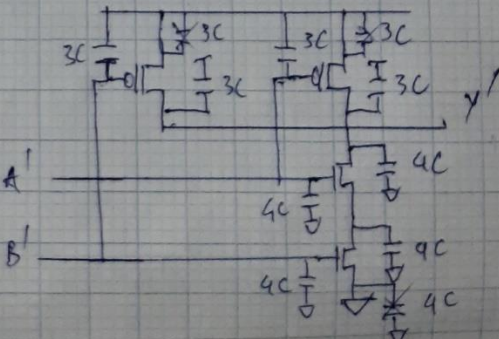 3C
3C
3C
3C
3C
3C
Y'
A'
4C
4C
B'
4C
4C
4C